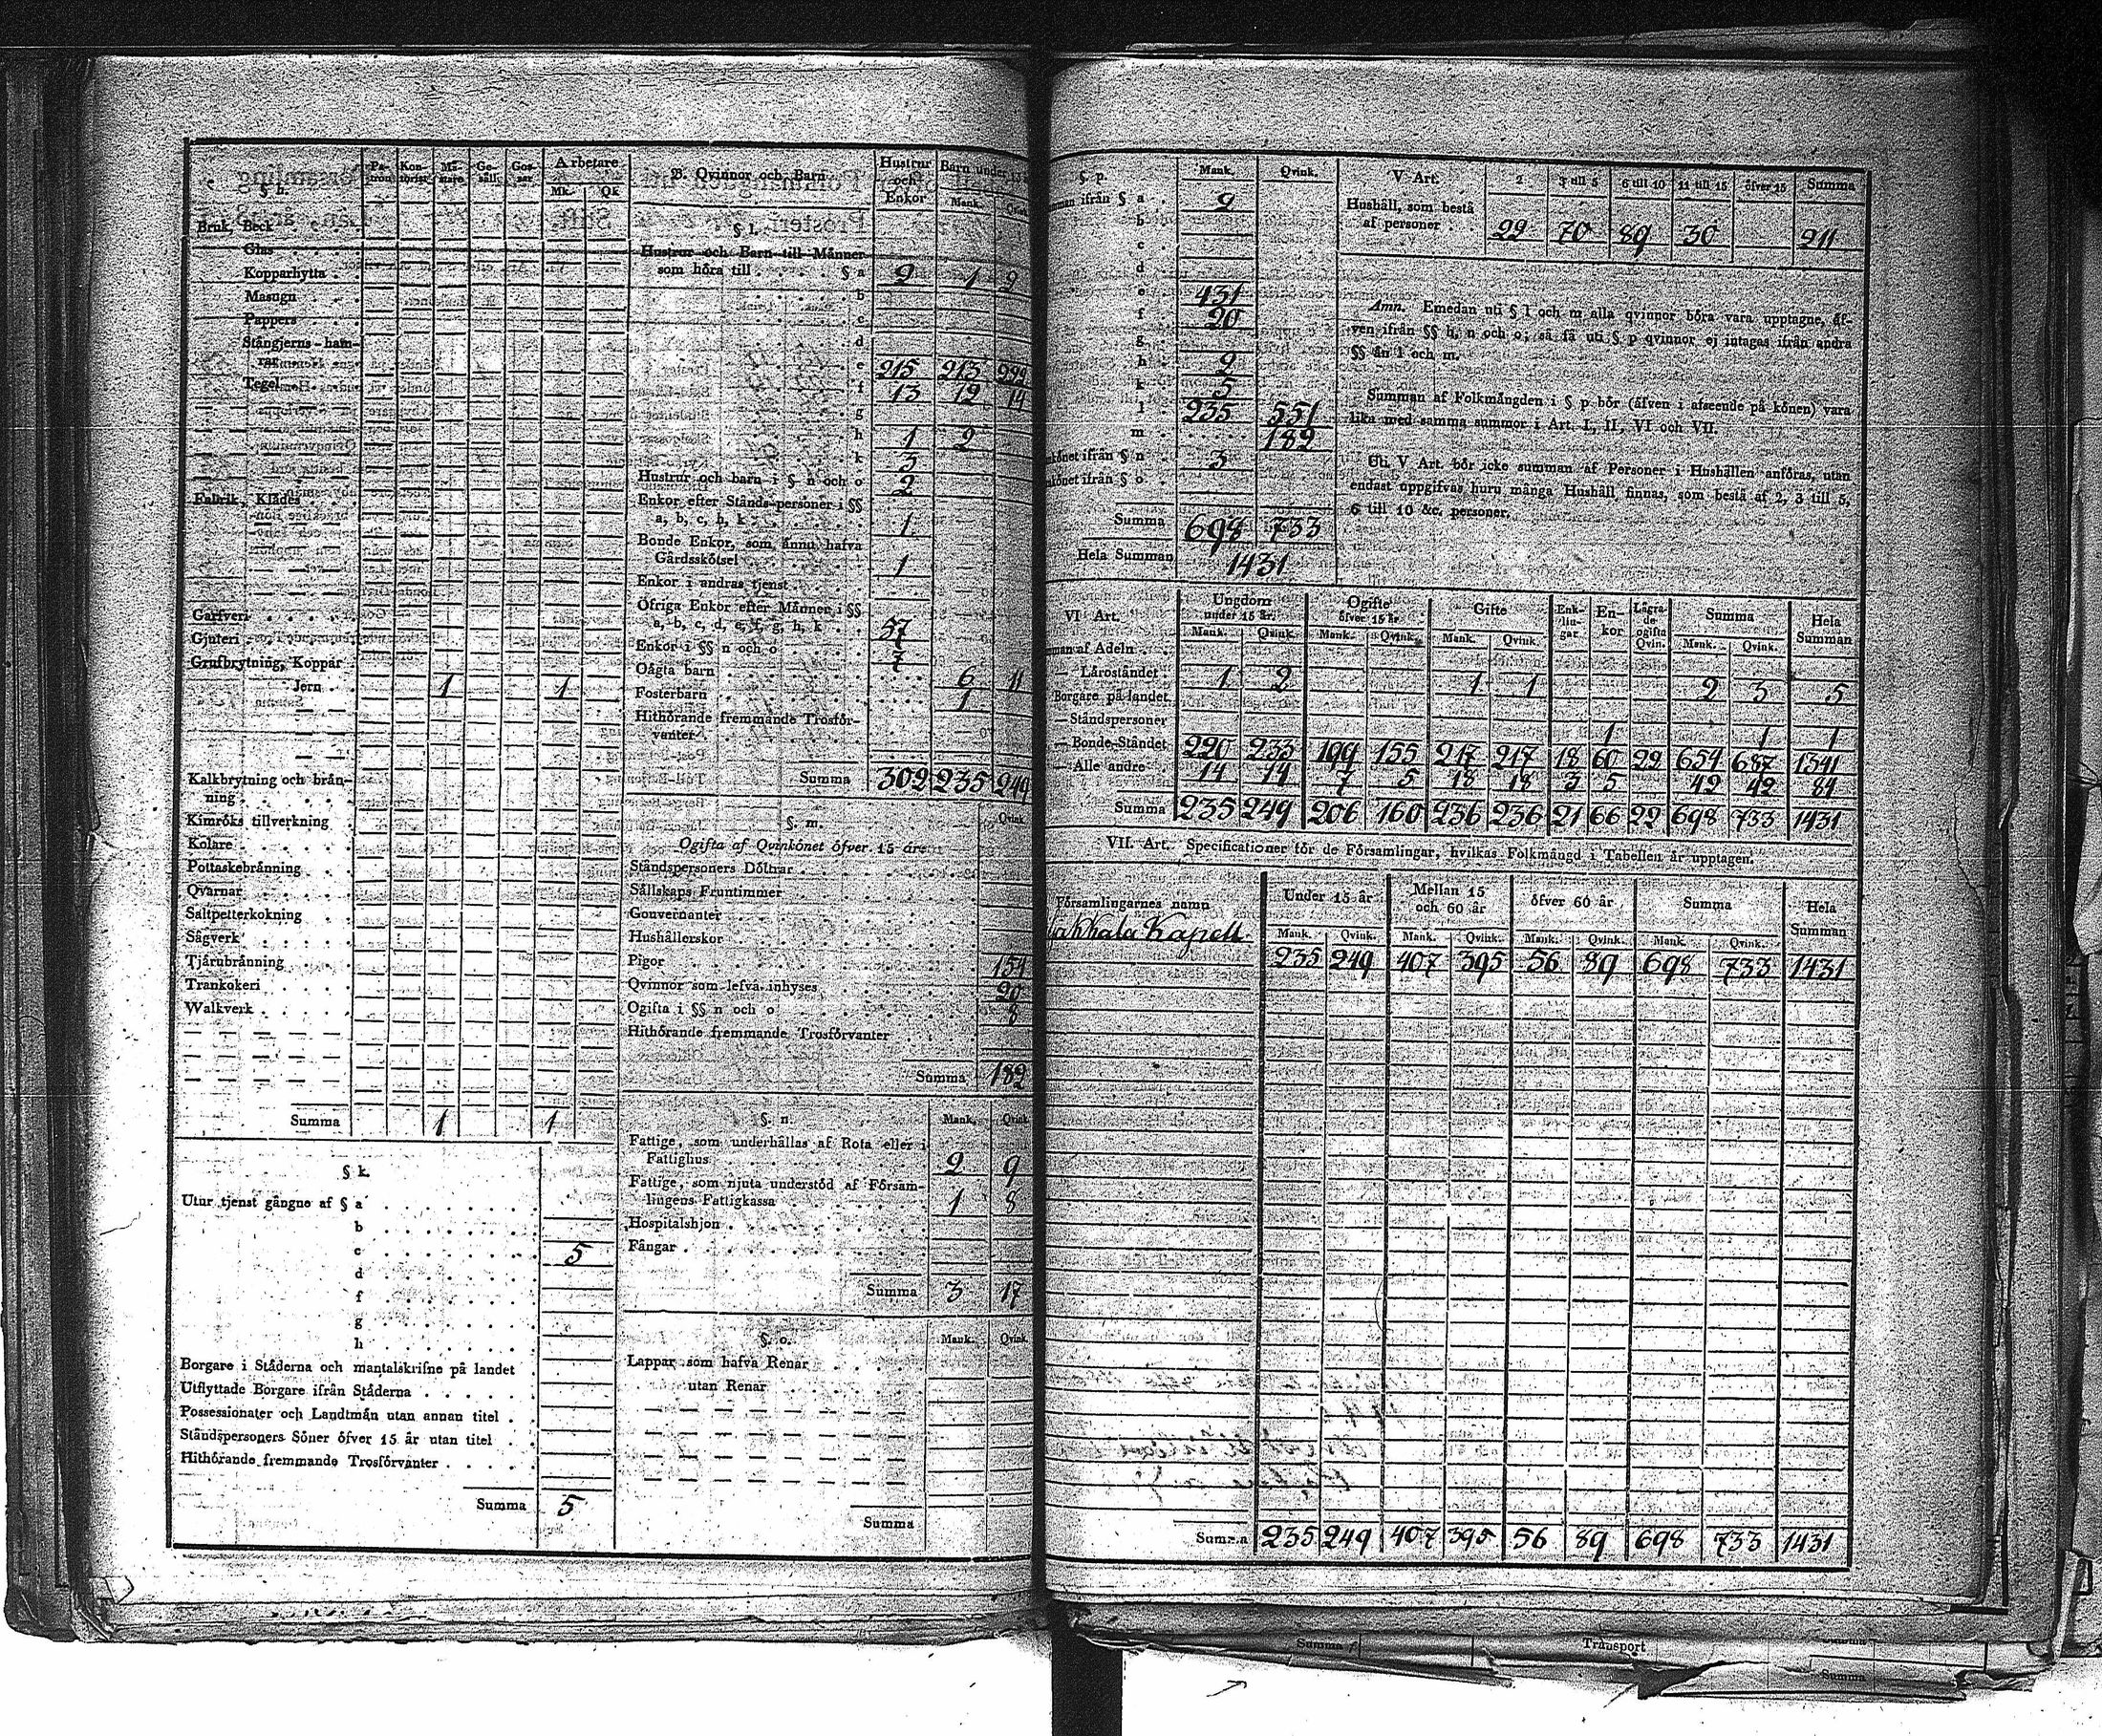 § h.
Pa-
tron
Kon-
torist
Mä-
stare
Ge-
säll
Gos-
sar
Arbetare
Mk. Qk
Bruk, Beck
Glas
Kopparhytta
Masugn
Pappers
Stångjerns-ham-
rar
Tegel
Fabrik, Klädes
Garfveri
Gjuteri
Grufbrytning, Koppar
Jern 1 1
Kalkbrytning och brän-
ning
Kimröks tillverkning
Kolare
Pottaskebränning
Qvarnar
Saltpetterkokning
Sågverk
Tjärubränning
Trankokeri
Walkverk
Summa 1 1
§ k.
Utur tjenst gångne af § a
b
c 5
d
f
g
h
Borgare i Städerna och mantalskrifne på landet
Utflyttade Borgare ifrån Städerna
Possessionater och Landtmän utan annan titel
Ståndspersoners Söner öfver 15 år utan titel
Hithörande fremmande Trosförvanter
Summa 5
B. Qvinnor och Barn
Hustrur
och
Enkor
Barn under 15
Mank. Qvink
§ l.
Hustrur och Barn till Männer
som höra till § a 2 1 2
b
c
d
e 215 213 222
f 13 12 14
g
h 1 2
k 3
Hustrur och barn i § n och o 2
Enkor efter Stånds-personer i §§
a, b, c, h, k 1
Bonde Enkor, som ännu hafva
Gårdsskötsel 1
Enkor i andras tjenst
Öfriga Enkor efter Männer i §§
a, b, c, d, e, f, g, h, k 57
Enkor i §§ n och o 7
Oägta barn 6 11
Fosterbarn 1
Hithörande fremmande Trosför-
vanter
Summa 302 235 249
§. m.
Qvink
Ogifta af Qvinkönet öfver 15 år
Ståndspersoners Döttrar
Sällskaps Fruntimmer
Gouvernanter
Hushållerskor
Pigor 154
Qvinnor som lefva inhyses 20
Ogifta i §§ n och o 8
Hithörande fremmande Trosförvanter
Summa 182
§. n. Mank. Qvink
Fattige, som underhållas af Rota eller i
Fattighus 2 9
Fattige, som njuta understöd af Försam-
lingens Fattigkassa 1 8
Hospitalshjon
Fångar
Summa 3 17
§. o. Mank. Qvink
Lappar som hafva Renar
utan Renar
Summa
§. p. Mank. Qvink.
ifrån § a 2
b
c
d
e 431
f 20
g
h 2
k 5
l 235 551
m 182
könet ifrån § n 3
könet ifrån § o
Summa 698 733
Hela Summan 1431
V Art. 2 3 till 5 6 till 10 11 till 15 öfver 15 Summa
Hushåll, som bestå
af personer 22 70 89 30 211
Anm. Emedan uti § l och m alla qvinnor böra vara upptagne, äf-
ven ifrån §§ h, n och o, så få uti § p qvinnor ej intagas ifrån andra
§§ än l och m.
Summan af Folkmängden i § p bör (äfven i afseende på könen) vara
lika med samma summor i Art. I, II, VI och VII.
Uti V Art. bör icke summan af Personer i Hushållen anföras, utan
endast uppgifvas huru många Hushåll finnas, som bestå af 2, 3 till 5,
6 till 10 &c. personer.
VI Art.
Ungdom
under 15 år.
Ogifte
öfver 15 år
Gifte
Enk-
lin-
gar
En-
kor
Lägra-
de
ogifta
Qvin.
Summa
Hela
Summan
Mank. Qvink. Mank. Qvink. Mank. Qvink. Mank. Qvink.
af Adeln
— Läroståndet 1 2 1 1 2 3 5
Borgare på landet
— Ståndspersoner 1 1 1
— Bonde-Ståndet 220 233 199 155 217 217 18 60 22 654 687 1341
— Alle andre 14 14 7 5 18 18 3 5 42 42 84
Summa 235 249 206 160 236 236 21 66 22 698 733 1431
VII. Art. Specificationer för de Församlingar, hvilkas Folkmängd i Tabellen är upptagen.
Församlingarnes namn
Under 15 år
Mellan 15
och 60 år
öfver 60 år
Summa
Hela
Summan
Mank. Qvink. Mank. Qvink. Mank. Qvink. Mank. Qvink.
Kapell 235 249 407 395 56 89 698 733 1431
Summa 235 249 407 395 56 89 698 733 1431
Summa
Transport
Summa